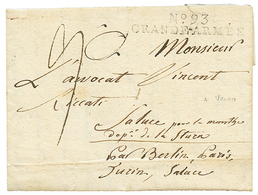 No 93
GRANDE ARMÉE
Monsieur
L'avocat Vincent
Riccati
Saluce pour le
dépt de la Stura
Par Berlin, Paris,
Turin, Saluce